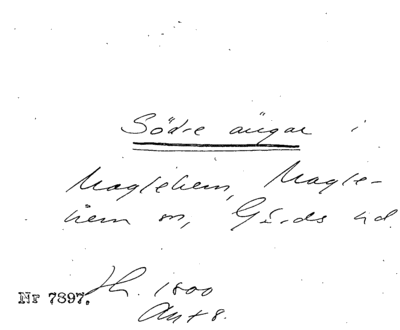 Södre ängar i
Maglehem, Magle-
hem sn, Gärds hd.
Nr 7897. Jh. 1800
Akt 8.